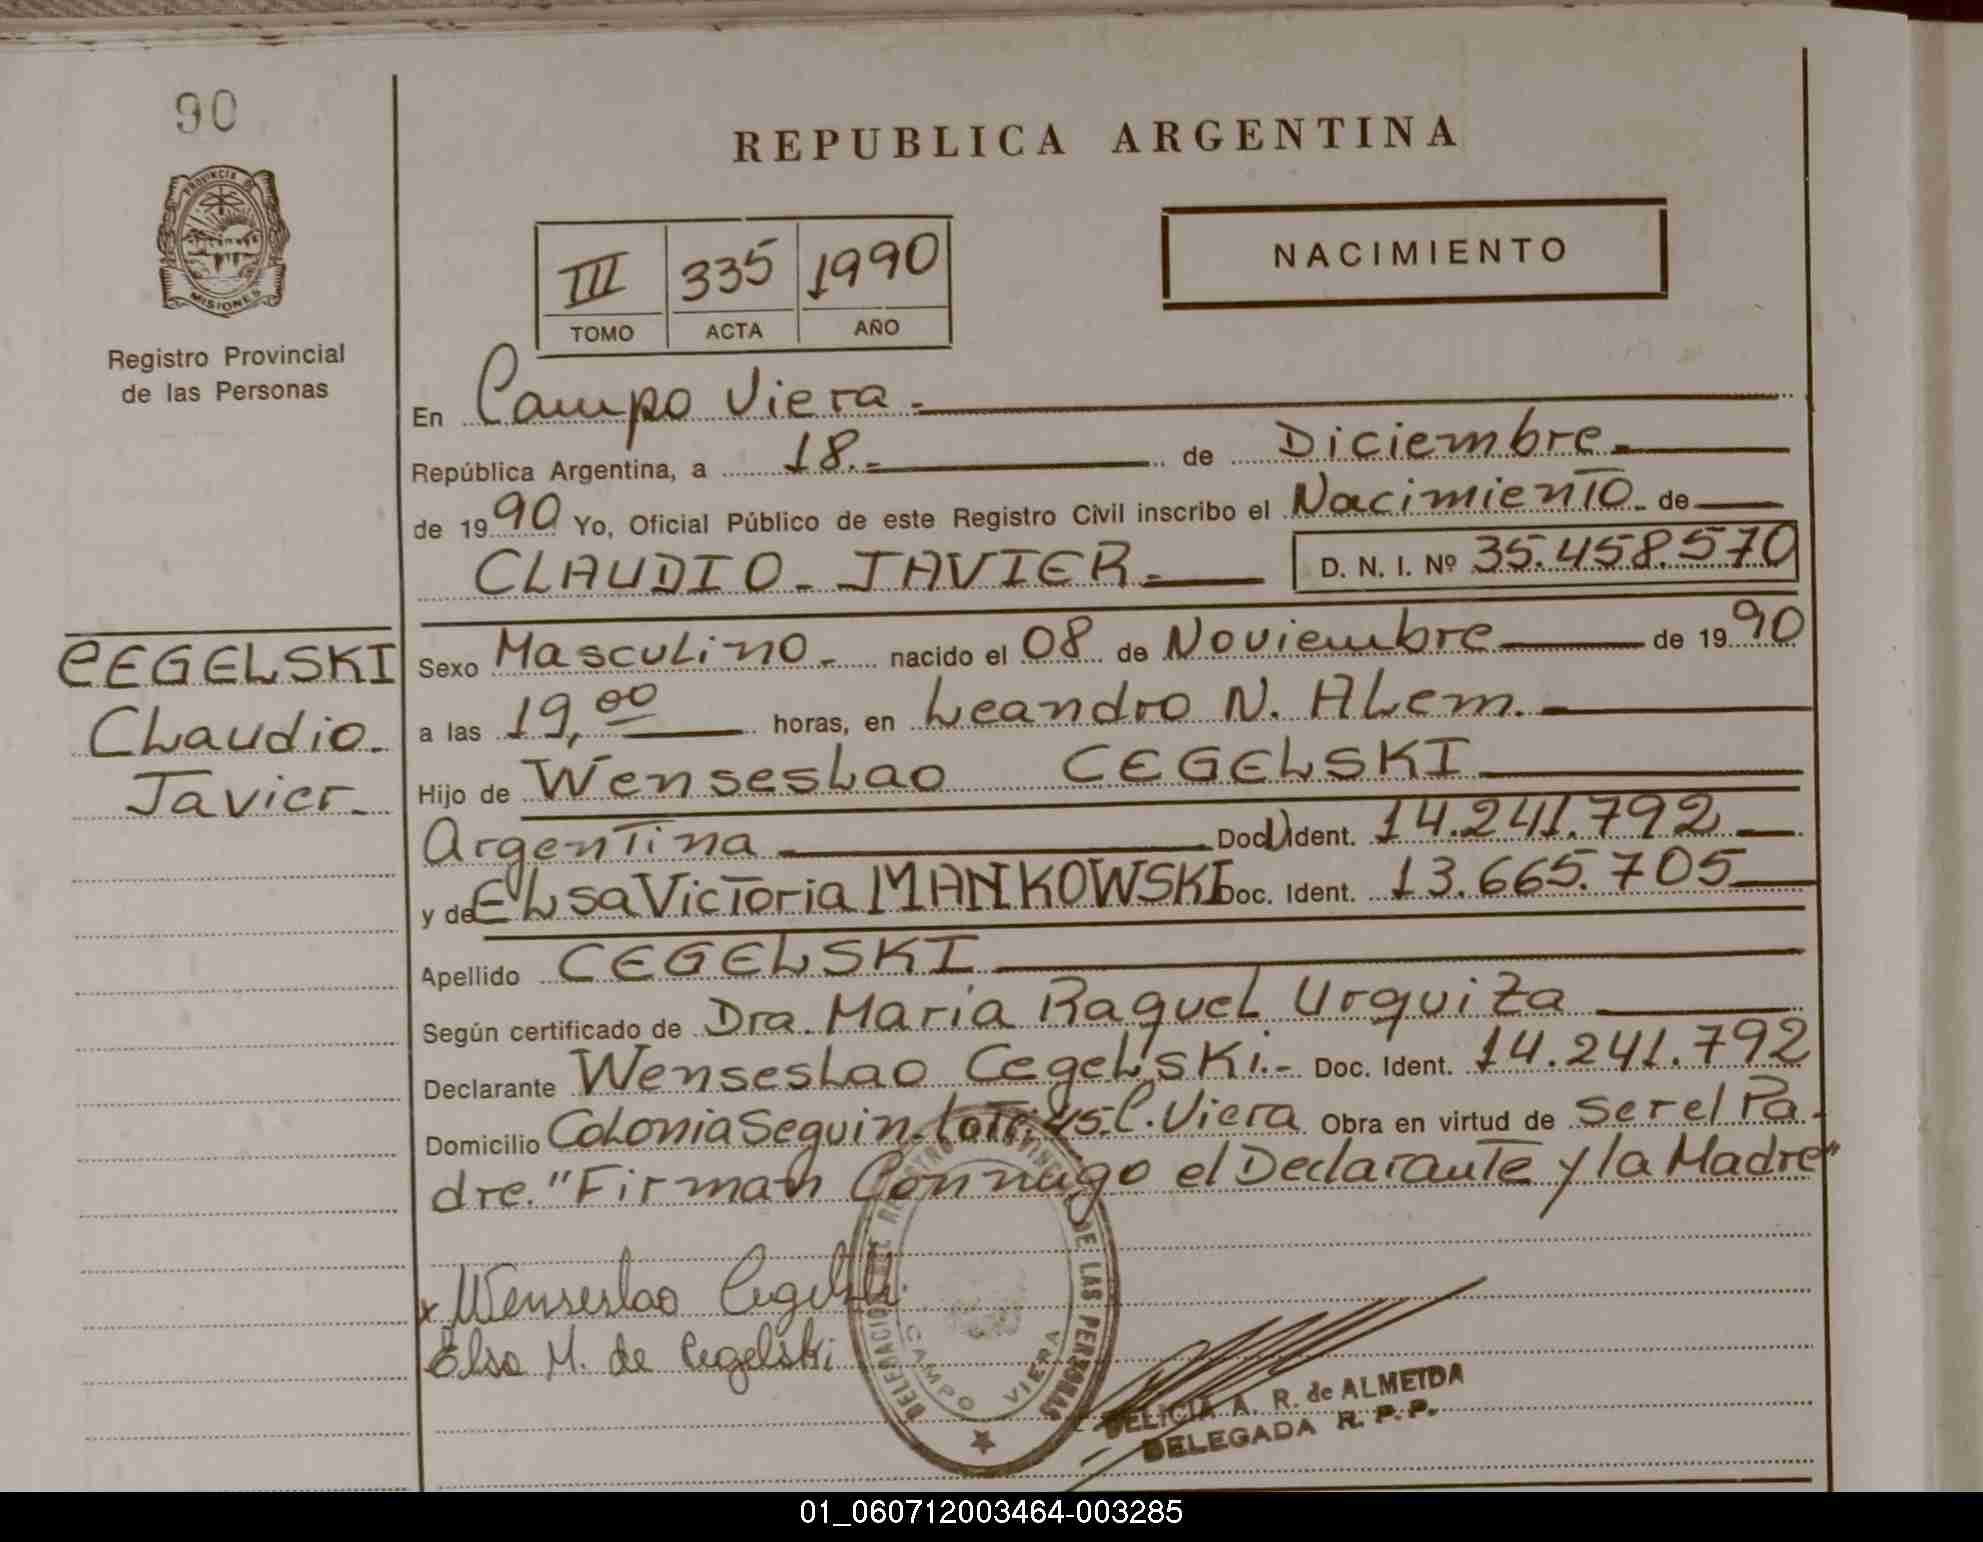 90
PROVINCIA DE
MISIONES
Registro Provincial
de las Personas
CEGELSKI
Claudio.
Javier.
REPUBLICA ARGENTINA
III 335 1990
TOMO ACTA AÑO
NACIMIENTO
En Campo Viera.
República Argentina, a 18.- de Diciembre.
de 1990 Yo, Oficial Público de este Registro Civil inscribo el Nacimiento. de
CLAUDIO. JAVIER. D. N. I. Nº 35.458.570
Sexo Masculino. nacido el 08 de Noviembre de 1990
a las 19,00 horas, en Leandro N. Alem.
Hijo de Wenseslao CEGELSKI
Argentina Doc. Ident. 14.241.792
y de Elsa Victoria MANKOWSKI Doc. Ident. 13.665.705
Apellido CEGELSKI
Según certificado de Dra. Maria Raquel Urquiza
Declarante Wenseslao Cegelski.- Doc. Ident. 14.241.792
Domicilio Colonia Seguin. 45. C. Viera Obra en virtud de Ser el Pa-
dre. "Firman Conmigo el Declarante y la Madre"
x Wenseslao Cegelski
Elsa M. de Cegelski
DELEGACION REGISTRO PROVINCIAL DE LAS PERSONAS
CAMPO VIERA
DELICIA A. R. de ALMEIDA
DELEGADA R. P. P.
01_060712003464-003285